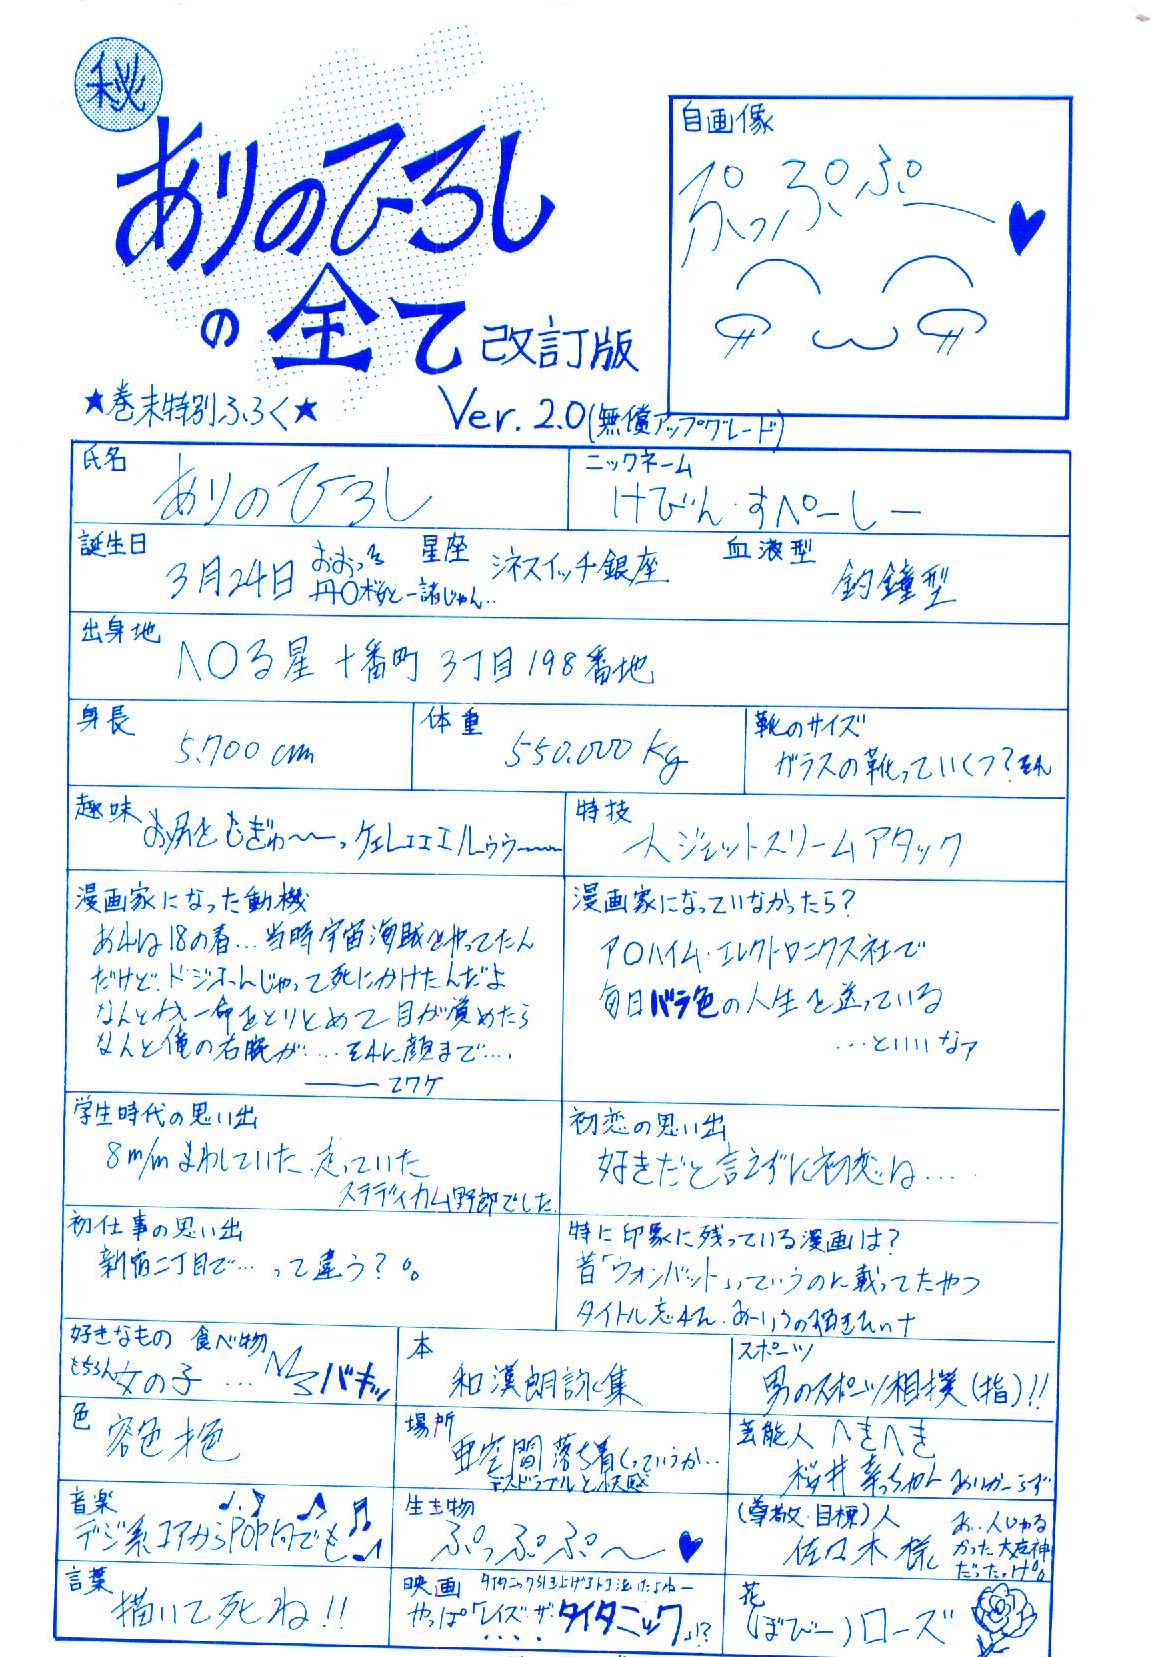 秘
ありのひろし
の全て 改訂版
★巻末特別ふろく★
Ver. 2.0(無償アップグレード)
自画像
ぷっぷぷぷー
氏名
ありのひろし
ニックネーム
けびん・すぺーしー
誕生日
3月24日
おおっ
丹〇桜と一諸じゃん‥
星座
シネスイッチ銀座
血液型
釣鐘型
出身地
八〇る星 十番町 3丁目198番地
身長
5.700cm
体重
550.000Kg
靴のサイズ
ガラスの靴っていくつ?
趣味
お尻をむぎゅ〜〜っ
特技
人ジェットスリームアタック
漫画家になった動機
あれは18の春…当時宇宙海賊をやってたん
だけど、ドジふんじゃって死にかけたんだよ
なんとか一命をとりとめて目が覚めたら
なんと俺の右腕が……それに顔まで….
漫画家になっていなかったら?
ア〇ハイム・エレクトロニクス社で
毎日バラ色の人生を送っている
…といいなァ
学生時代の思い出
8m/mまわしていた、走っていた
ステディカム野郎でした
初恋の思い出
好きだと言えずに初恋は…‥
初仕事の思い出
新宿二丁目で…って違う?
特に印象に残っている漫画は?
昔「ウォンバット」っていうのに載ってたやつ
タイトル忘れた
好きなもの 食べ物
もちろん女の子 … バキッ
本
和漢朗詠集
スポーツ
男のスポーツ相撲(指)!!
色
容色才色
場所
亜空間 落ち着くっていうか‥
デスドライブルと快感
芸能人 へきへき
桜井幸っちゃん
音楽
デジ系コアからPOP何でも
生き物
ぷっぷぷぷ〜
(尊敬・目標)人
佐々木様
あ‥人じゃな
かった大魔神
だったっけ
言葉
描いて死ね!!
映画
やっぱ「レイズ・ザ・タイタニック」!?
花
(ぼびー)ローズ